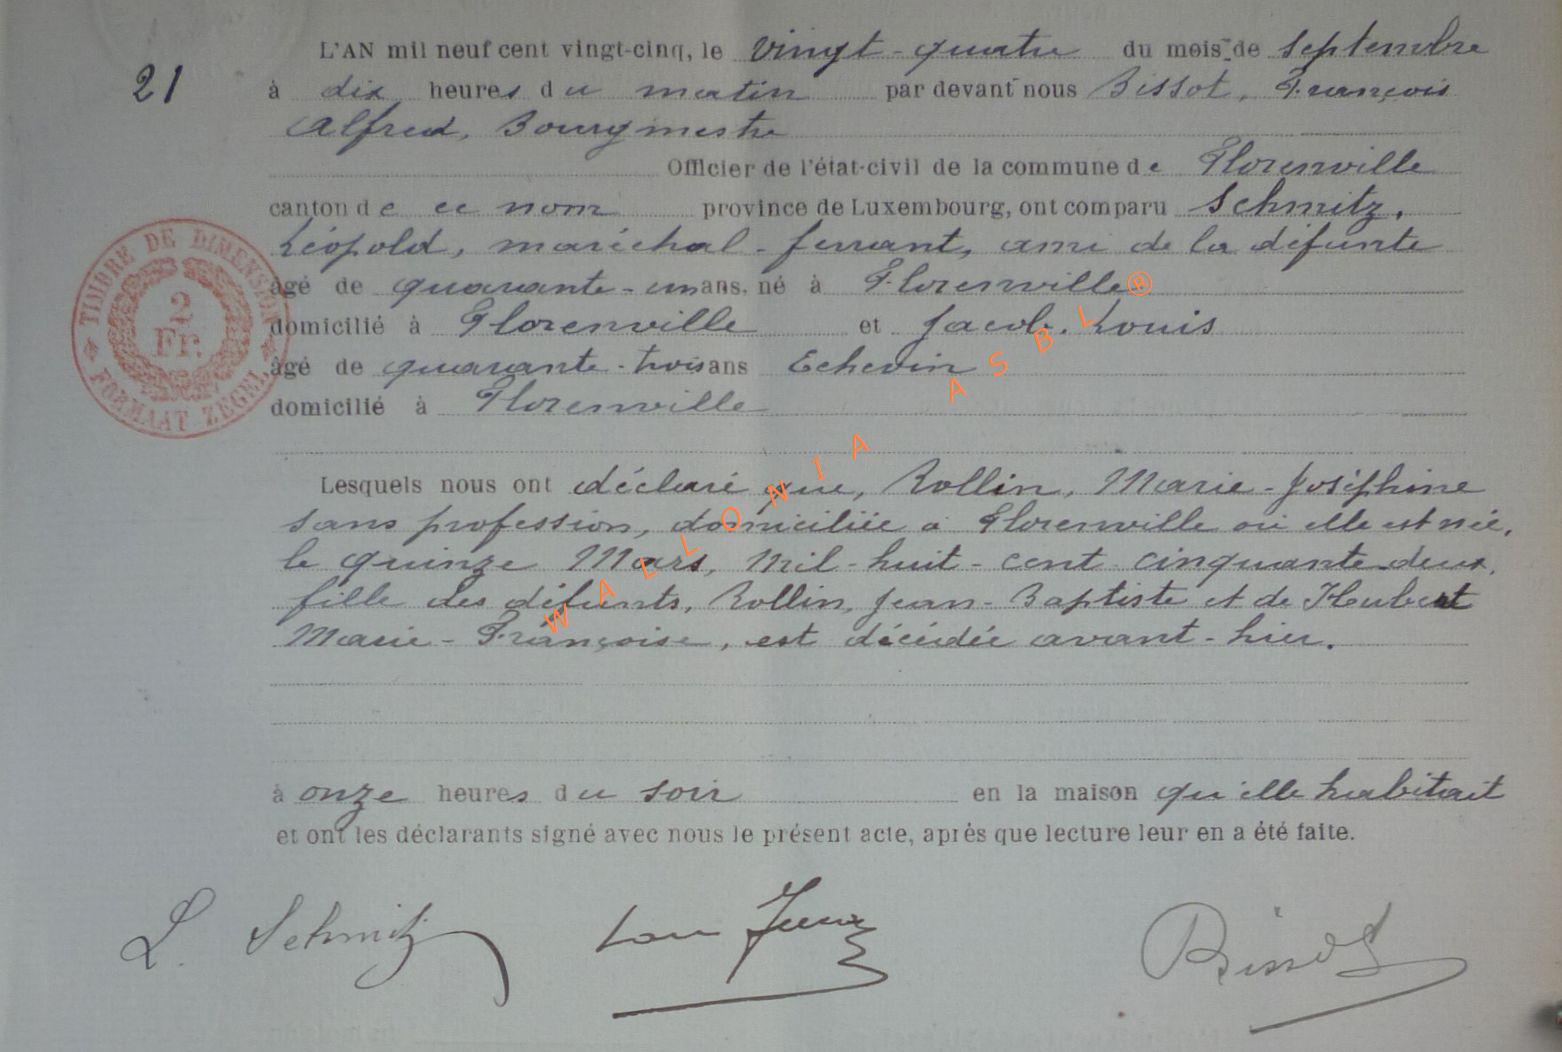 21
L'AN mil neuf cent vingt-cinq, le vingt-quatre du mois de septembre
à dix heures du matin par devant nous Bissot, François
Alfred, Bourgmestre
Officier de l'état-civil de la commune de Florenville
canton de ce nom province de Luxembourg, ont comparu Schmitz,
Léopold, maréchal-ferrant, ami de la défunte
âgé de quarante-un ans, né à Florenville
domicilié à Florenville et Jacob, Louis
âgé de quarante-trois ans Echevin
domicilié à Florenville
Lesquels nous ont déclaré que, Rollin, Marie-Joséphine
sans profession, domiciliée à Florenville où elle est née,
le quinze Mars, mil-huit-cent cinquante-deux,
fille des défunts, Rollin, Jean-Baptiste et de Hubert
Marie-Françoise, est décédée avant-hier.
à onze heures du soir en la maison qu'elle habitait
et ont les déclarants signé avec nous le présent acte, après que lecture leur en a été faite.
L. Schmitz
Bissot
TIMBRE DE DIMENSION
2
Fr.
FORMAAT ZEGEL
WALLONIA ASBL®